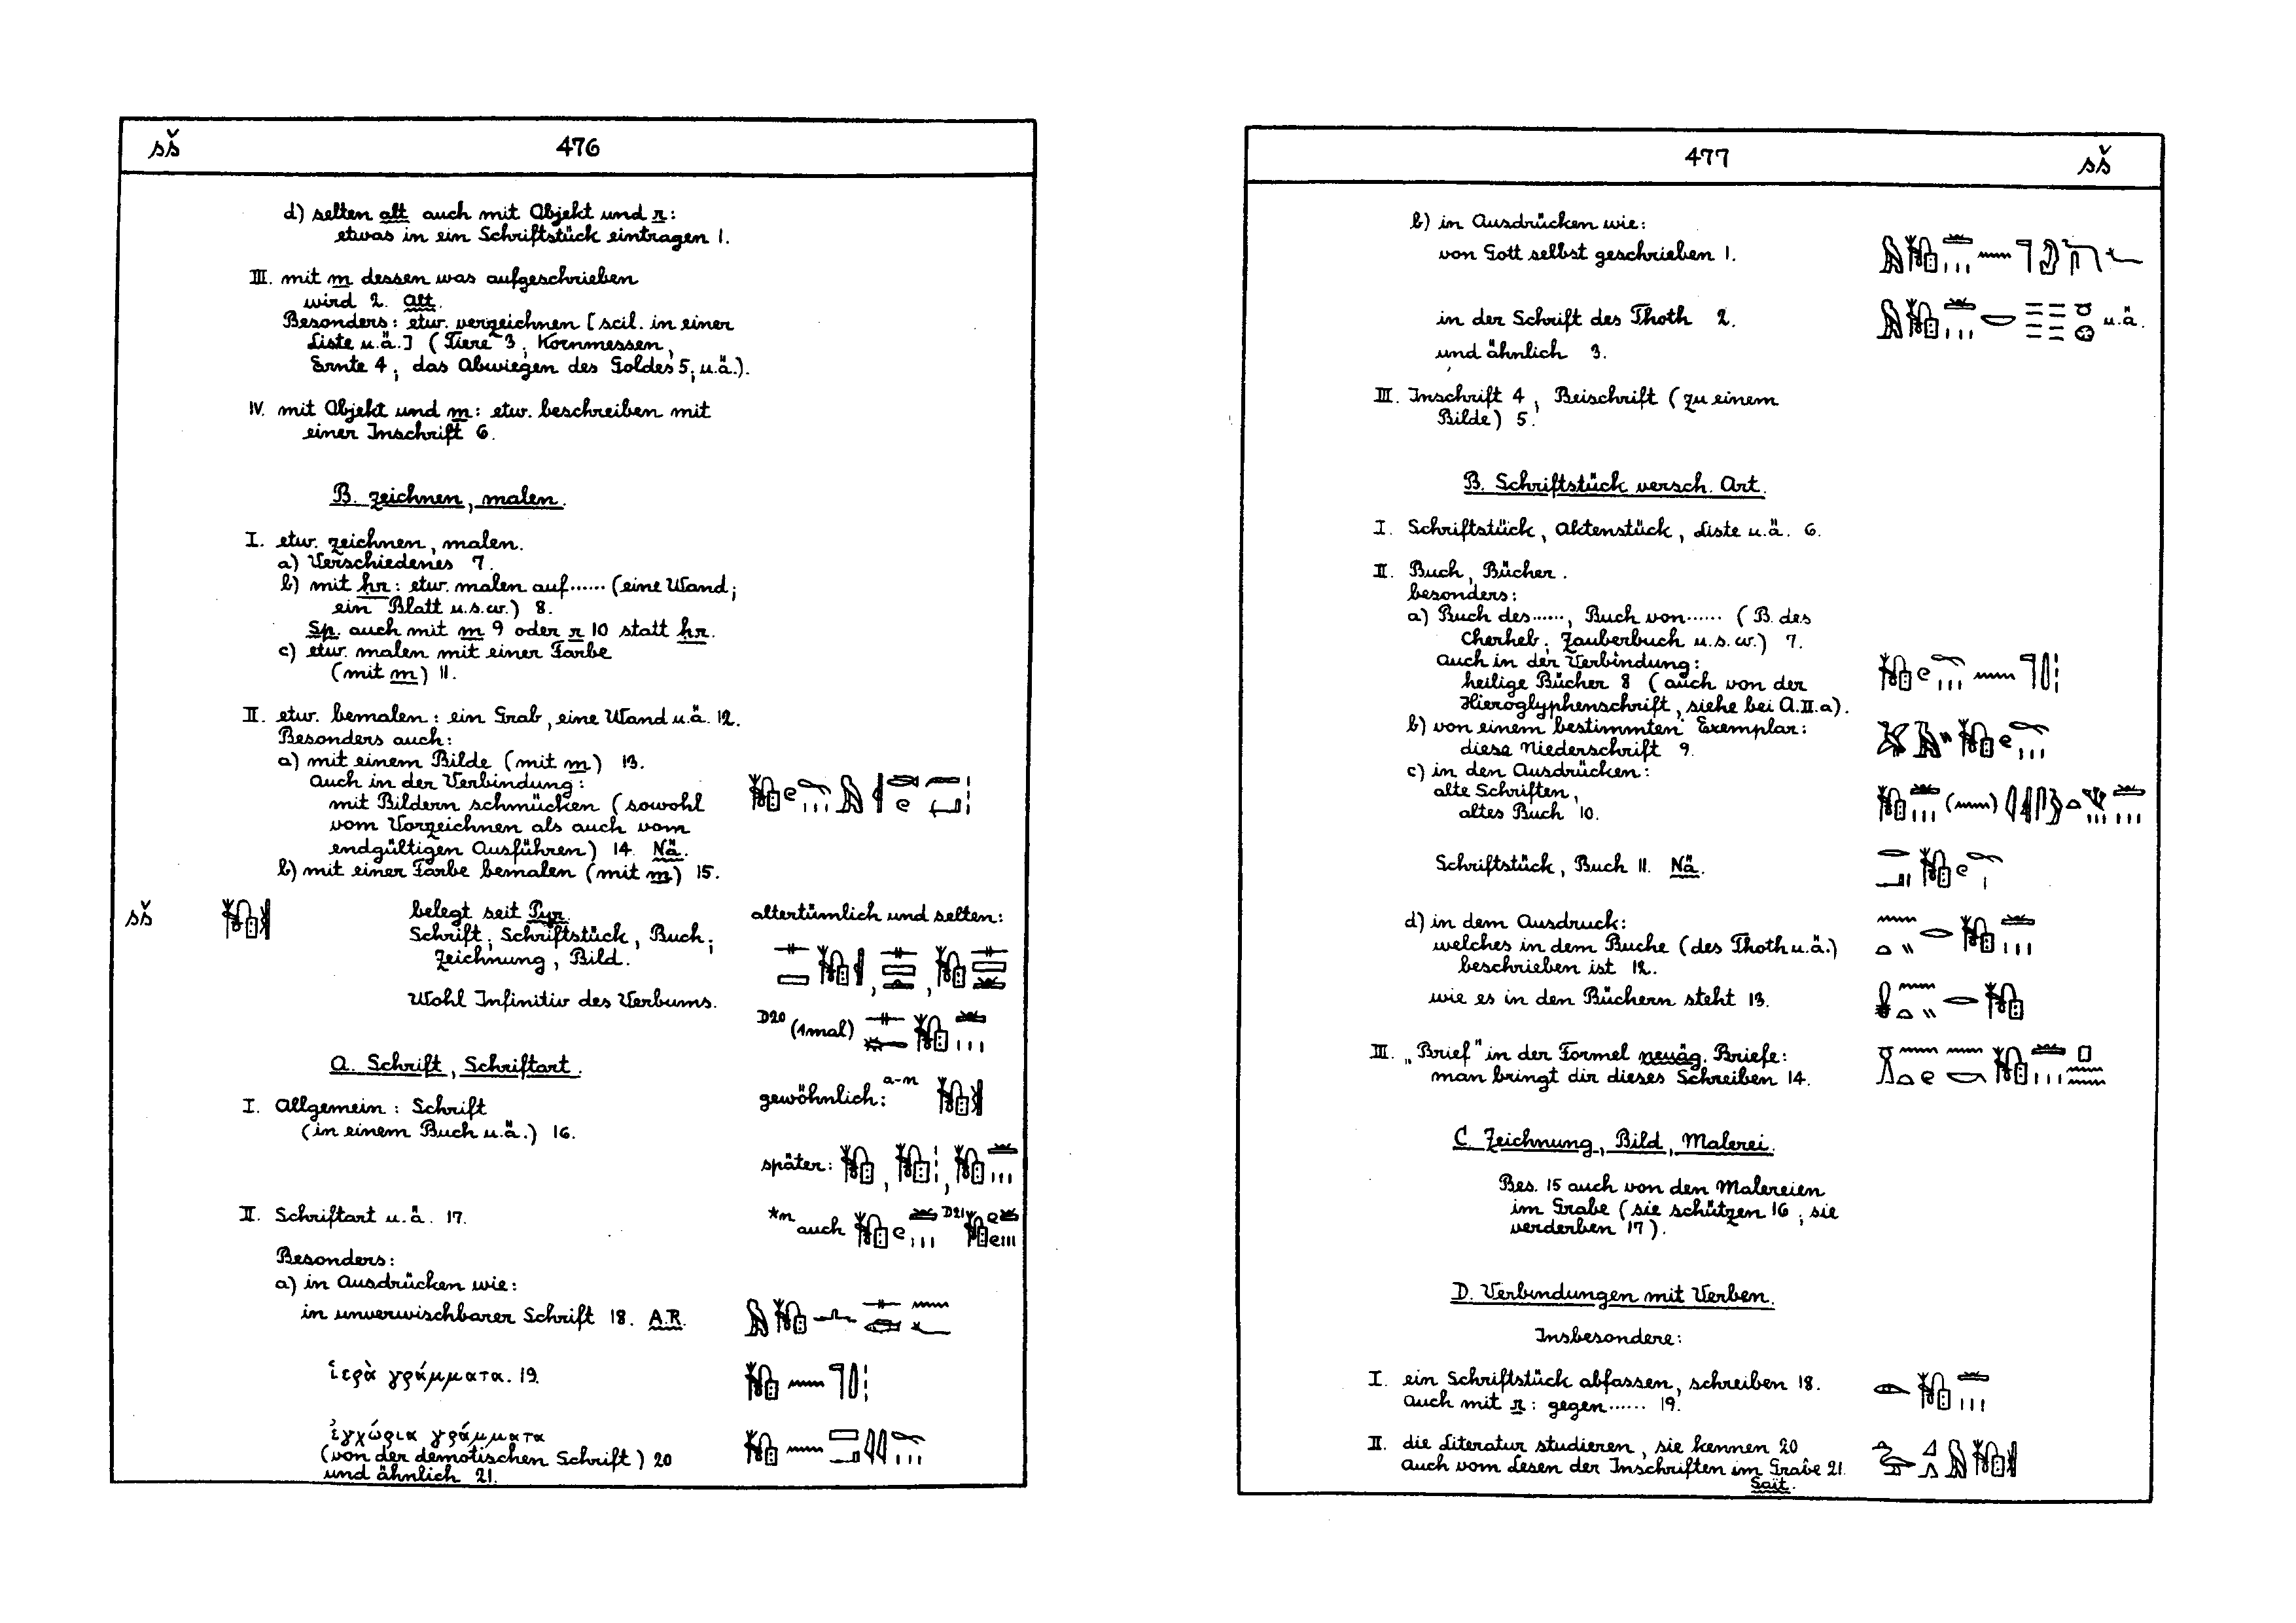 sš 476
d) selten alt auch mit Objekt und r:
etwas in ein Schriftstück eintragen 1.
III. mit m dessen was aufgeschrieben
wird 2. alt.
Besonders: etw. verzeichnen [scil. in einer
Liste u.ä.] (Tiere 3; Kornmessen,
Ernte 4; das Abwiegen des Goldes 5; u.ä.).
IV. mit Objekt und m: etw. beschreiben mit
einer Inschrift 6.
B. zeichnen, malen.
I. etw. zeichnen, malen.
a) Verschiedenes 7.
b) mit ḥr: etw. malen auf...... (eine Wand;
ein Blatt u.s.w.) 8.
Sp. auch mit m 9 oder r 10 statt ḥr.
c) etw. malen mit einer Farbe
(mit m) 11.
II. etw. bemalen: ein Grab, eine Wand u.ä. 12.
Besonders auch:
a) mit einem Bilde (mit m) 13.
auch in der Verbindung:
mit Bildern schmücken (sowohl
vom Vorzeichnen als auch vom
endgültigen Ausführen) 14. Nä.
b) mit einer Farbe bemalen (mit m) 15.
sš belegt seit Pyr. altertümlich und selten:
Schrift; Schriftstück, Buch;
Zeichnung, Bild.
Wohl Infinitiv des Verbums.
D20 (1mal)
A. Schrift, Schriftart.
gewöhnlich: a-n
I. Allgemein: Schrift
(in einem Buch u.ä.) 16.
später:
II. Schriftart u.ä. 17.
*n auch D21
Besonders:
a) in Ausdrücken wie:
in unverwischbarer Schrift 18. A.R.
ἱερὰ γράμματα. 19.
ἐγχώρια γράμματα
(von der demotischen Schrift) 20
und ähnlich 21.
477 sš
b) in Ausdrücken wie:
von Gott selbst geschrieben 1.
in der Schrift des Thoth 2. u.ä.
und ähnlich 3.
III. Inschrift 4; Beischrift (zu einem
Bilde) 5.
B. Schriftstück versch. Art.
I. Schriftstück, Aktenstück, Liste u.ä. 6.
II. Buch, Bücher.
besonders:
a) Buch des......, Buch von...... (B. des
Cherheb; Zauberbuch u.s.w.) 7.
auch in der Verbindung:
heilige Bücher 8 (auch von der
Hieroglyphenschrift, siehe bei A.II.a).
b) von einem bestimmten Exemplar:
diese Niederschrift 9.
c) in den Ausdrücken:
alte Schriften,
altes Buch 10.
Schriftstück, Buch 11. Nä.
d) in dem Ausdruck:
welches in dem Buche (des Thoth u.ä.)
beschrieben ist 12.
wie es in den Büchern steht 13.
III. „Brief" in der Formel neuäg. Briefe:
man bringt dir dieses Schreiben 14.
C. Zeichnung, Bild, Malerei.
Bes. 15 auch von den Malereien
im Grabe (sie schützen 16; sie
verderben 17).
D. Verbindungen mit Verben.
Insbesondere:
I. ein Schriftstück abfassen, schreiben 18.
auch mit r: gegen...... 19.
II. die Literatur studieren, sie kennen 20
auch vom Lesen der Inschriften im Grabe 21.
Sait.